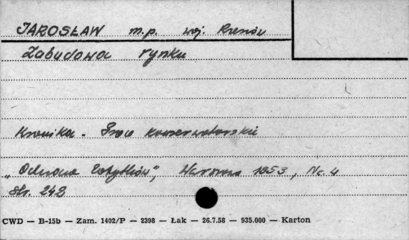 JAROSŁAW m.p. woj. Rzeszów
Zabudowa rynku
Kronika. Prace konserwatorskie
"Ochrona Zabytków", Warszawa 1953, Nr. 4
Str. 248
CWD — B-15b — Zam. 1402/P — 2398 — Łak — 26.7.58 — 935.000 — Karton